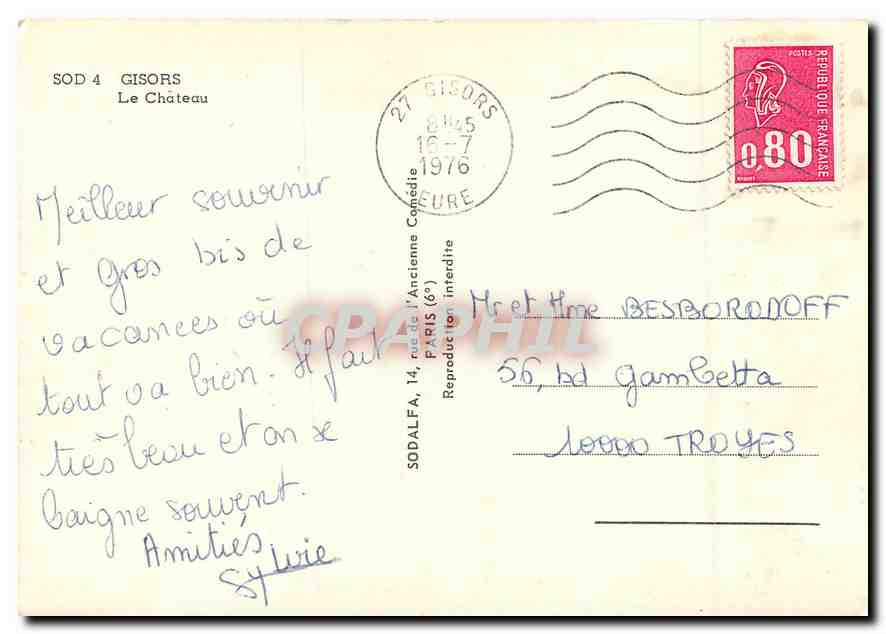 SOD 4 GISORS
Le Château
27 GISORS
8H45
16-7
1976
EURE
POSTES
REPUBLIQUE FRANÇAISE
0,80
Meilleur souvenir
et gros bis de
vacances où
tout va bien. Il fait
très beau et on se
baigne souvent.
Amitiés
Sylvie
SODALFA, 14, rue de l'Ancienne Comédie
PARIS (6e)
Reproduction interdite
CPAPHIL
Mr et Mme BESBORODOFF
56, bd Gambetta
10000 TROYES